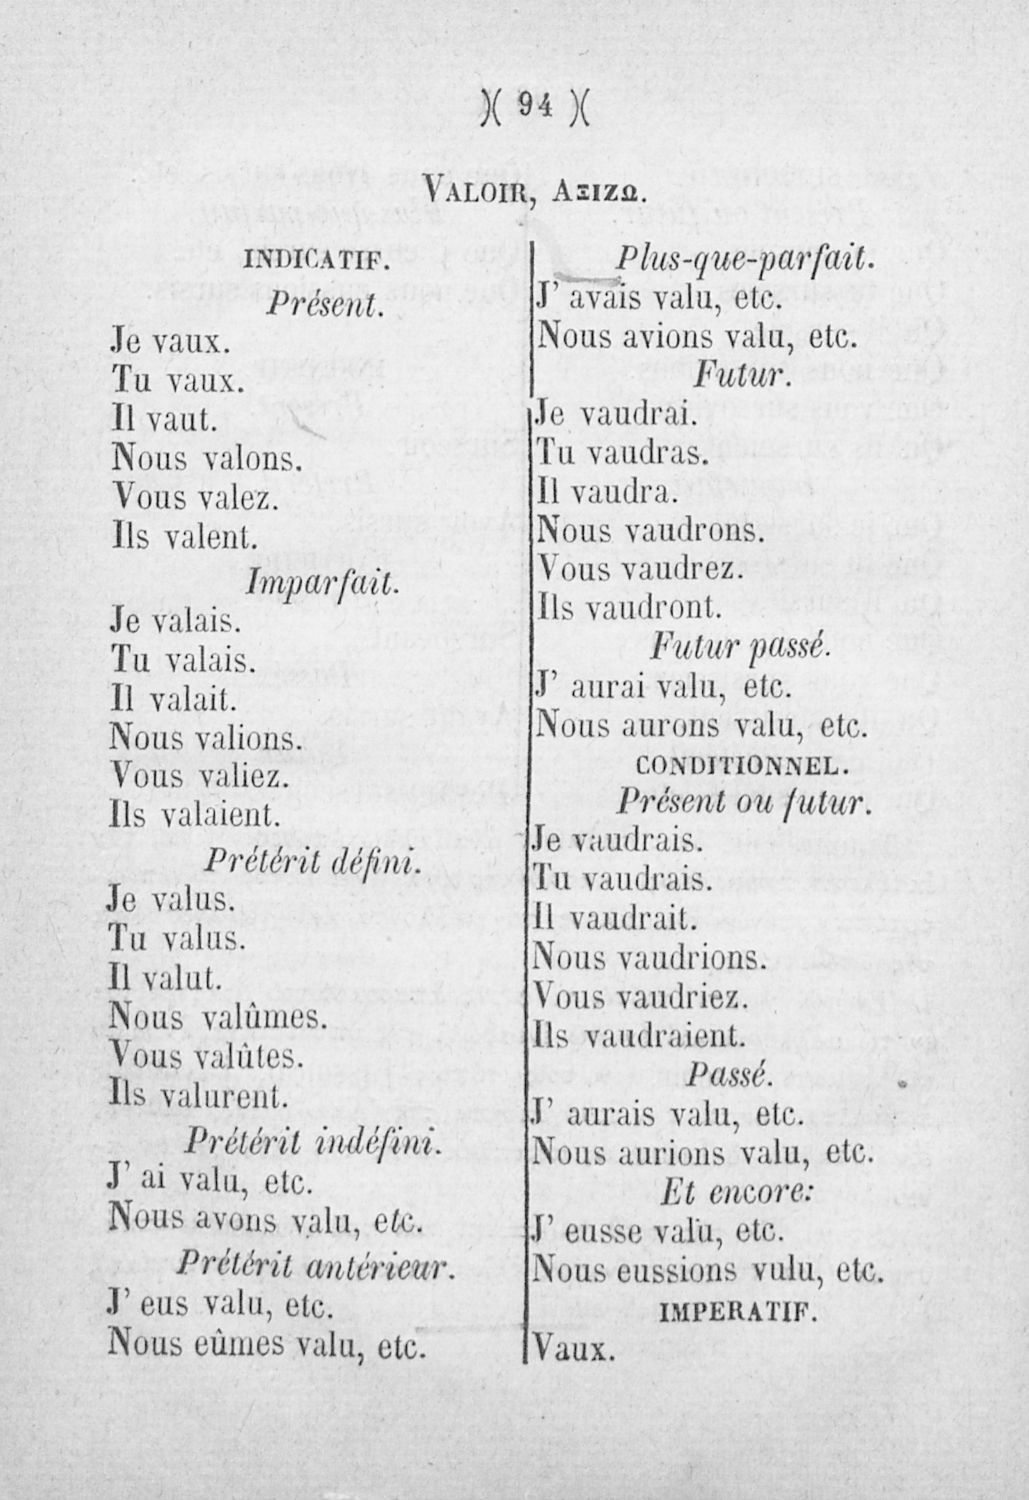 )( 94 )(
VALOIR, ΑΞΙΖΩ.
INDICATIF.
Présent.
Je vaux.
Tu vaux.
Il vaut.
Nous valons.
Vous valez.
Ils valent.
Imparfait.
Je valais.
Tu valais.
Il valait.
Nous valions.
Vous valiez.
Ils valaient.
Prétérit défini.
Je valus.
Tu valus.
Il valut.
Nous valûmes.
Vous valûtes.
Ils valurent.
Prétérit indéfini.
J' ai valu, etc.
Nous avons valu, etc.
Prétérit antérieur.
J' eus valu, etc.
Nous eûmes valu, etc.
Plus-que-parfait.
J' avais valu, etc.
Nous avions valu, etc.
Futur.
Je vaudrai.
Tu vaudras.
Il vaudra.
Nous vaudrons.
Vous vaudrez.
Ils vaudront.
Futur passé.
J' aurai valu, etc.
Nous aurons valu, etc.
CONDITIONNEL.
Présent ou futur.
Je vaudrais.
Tu vaudrais.
Il vaudrait.
Nous vaudrions.
Vous vaudriez.
Ils vaudraient.
Passé.
J' aurais valu, etc.
Nous aurions valu, etc.
Et encore:
J' eusse valu, etc.
Nous eussions vulu, etc.
IMPERATIF.
Vaux.